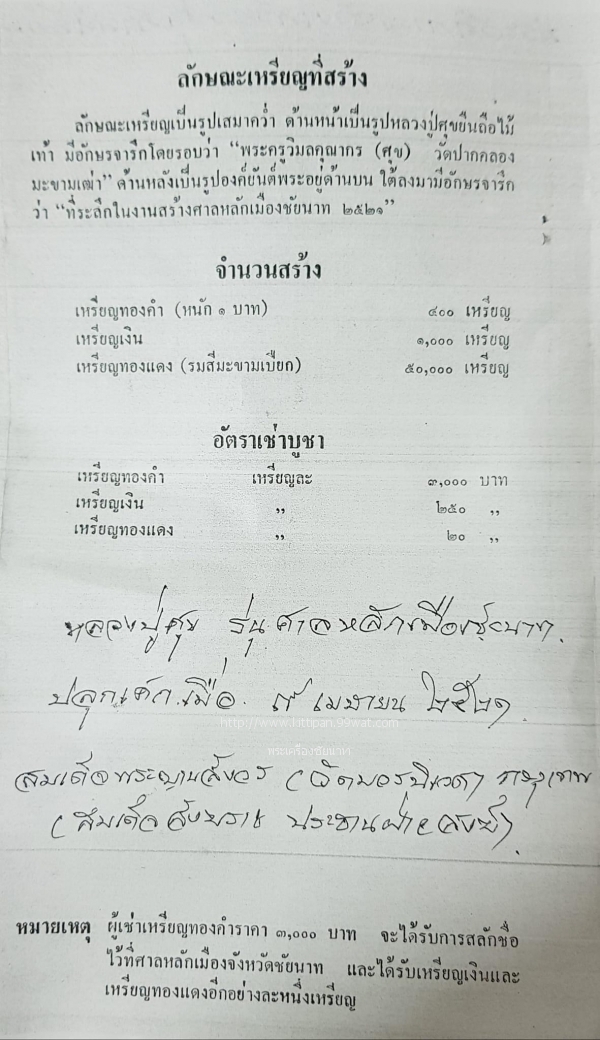 ลักษณะเหรียญที่สร้าง
ลักษณะเหรียญเป็นรูปเสมาคว่ำ ด้านหน้าเป็นรูปหลวงปู่ศุขยืนถือไม้
เท้า มีอักษรจารึกโดยรอบว่า “พระครูวิมลคุณากร (ศุข) วัดปากคลอง
มะขามเฒ่า” ด้านหลังเป็นรูปองค์ยันต์พระอยู่ด้านบน ใต้ลงมามีอักษรจารึก
ว่า “ที่ระลึกในงานสร้างศาลหลักเมืองชัยนาท ๒๕๒๑”
จำนวนสร้าง
เหรียญทองคำ (หนัก ๑ บาท) ๔๐๐ เหรียญ
เหรียญเงิน ๑,๐๐๐ เหรียญ
เหรียญทองแดง (รมสีมะขามเปียก) ๕๐,๐๐๐ เหรียญ
อัตราเช่าบูชา
เหรียญทองคำ เหรียญละ ๓,๐๐๐ บาท
เหรียญเงิน ,, ๒๕๐ ,,
เหรียญทองแดง ,, ๒๐ ,,
หลวงปู่ศุข รุ่นศาลหลักเมืองชัยนาท.
ปลุกเสก เมื่อ ๗ เมษายน ๒๕๒๑.
http://www.kittipan.99wat.com
พระเครื่องชัยนาท
สมเด็จพระญาณสังวร (วัดบวรนิเวศ) กรุงเทพ
(สมเด็จสังฆราช ประธานฝ่ายสงฆ์).
หมายเหตุ ผู้เช่าเหรียญทองคำราคา ๓,๐๐๐ บาท จะได้รับการสลักชื่อ
ไว้ที่ศาลหลักเมืองจังหวัดชัยนาท และได้รับเหรียญเงินและ
เหรียญทองแดงอีกอย่างละหนึ่งเหรียญ